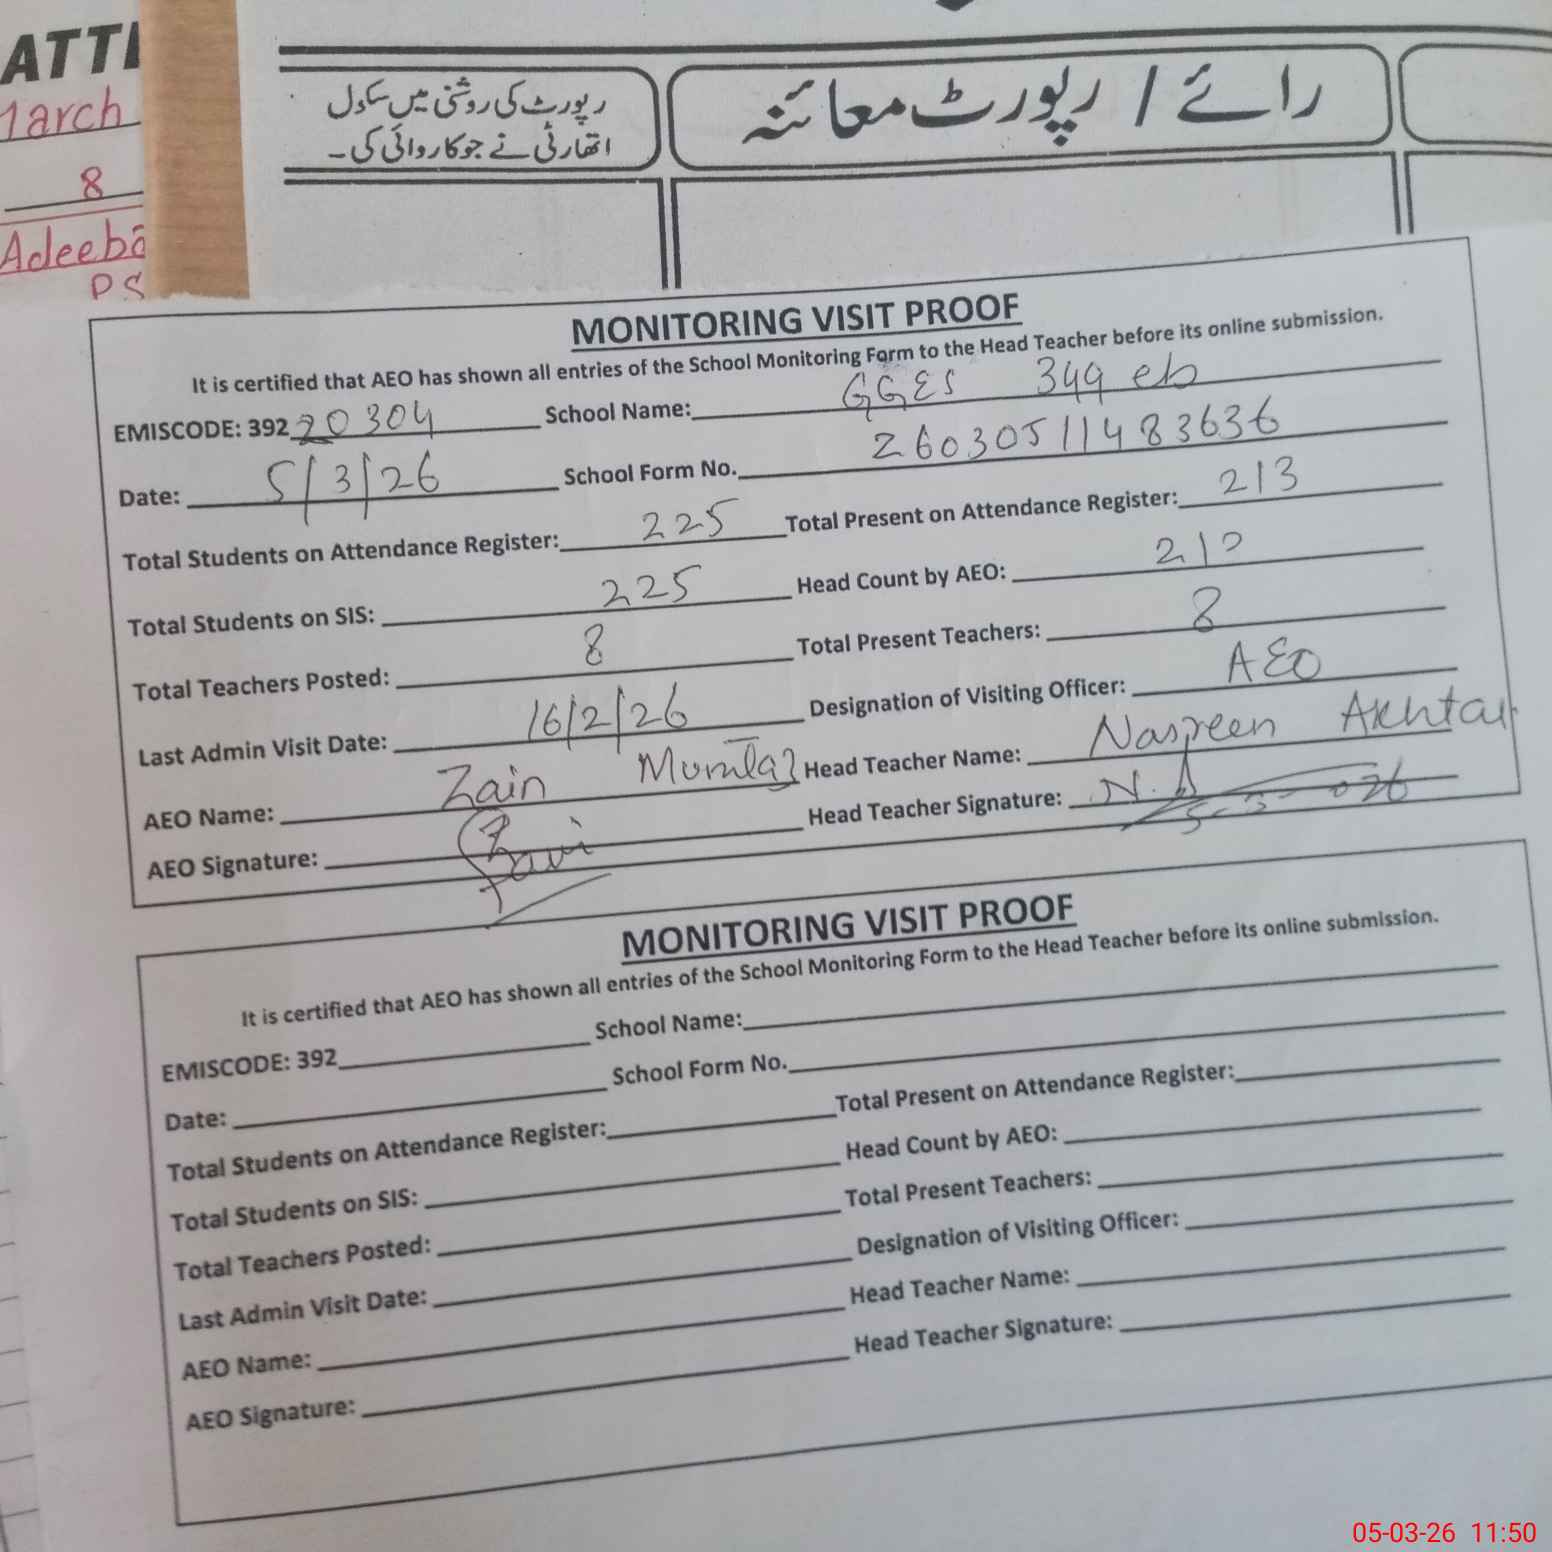 ATTE
March
8
Adeeba
PS
رائے / رپورٹ معائنہ
رپورٹ کی روشنی میں سکول
اتھارٹی نے جو کاروائی کی۔
MONITORING VISIT PROOF
It is certified that AEO has shown all entries of the School Monitoring Form to the Head Teacher before its online submission.
EMISCODE: 392 20304 School Name: GGES 349 eb
Date: 5/3/26 School Form No. 26030511483636
Total Students on Attendance Register: 225 Total Present on Attendance Register: 213
Total Students on SIS: 225 Head Count by AEO:
Total Teachers Posted: 8 Total Present Teachers: 8
Last Admin Visit Date: 16/2/26 Designation of Visiting Officer: AEO
AEO Name: Zain Mumtaz Head Teacher Name: Nasreen Akhtar
AEO Signature: Head Teacher Signature: N.A
MONITORING VISIT PROOF
It is certified that AEO has shown all entries of the School Monitoring Form to the Head Teacher before its online submission.
EMISCODE: 392 School Name:
Date: School Form No.
Total Students on Attendance Register: Total Present on Attendance Register:
Total Students on SIS: Head Count by AEO:
Total Teachers Posted: Total Present Teachers:
Last Admin Visit Date: Designation of Visiting Officer:
AEO Name: Head Teacher Name:
AEO Signature: Head Teacher Signature:
05-03-26 11:50